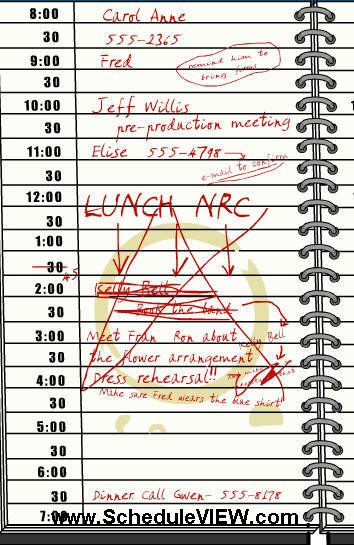 8:00 Carol Anne
30 555-2365
9:00 Fred
remind him to
bring
30
10:00 Jeff Willis
30 pre-production meeting
11:00 Elise 555-4798
e-mail to confirm
30
12:00 LUNCH NRC
30
1:00
30
45
2:00 Kelly Bell
30 Book the band
3:00 Meet Fran Ron about
Kelly Bell
30 the flower arrangement
4:00 Dress rehearsal!!
Make sure Fred wears the blue shirt!!
30
5:00
30
6:00
30 Dinner Call Gwen- 555-8178
7:00
www.ScheduleVIEW.com